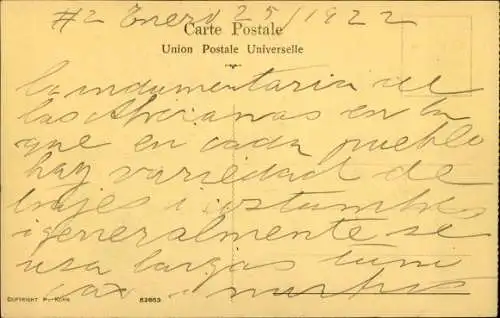 #2 Enero 25/1922
Carte Postale
Union Postale Universelle
la indumentaria de
las Africanas en la
que en cada pueblo
hay variedad de
trajes i costumbres
i generalmente se
usa largas tuni
cas i muchos
COPYRIGHT P. KORN
52653